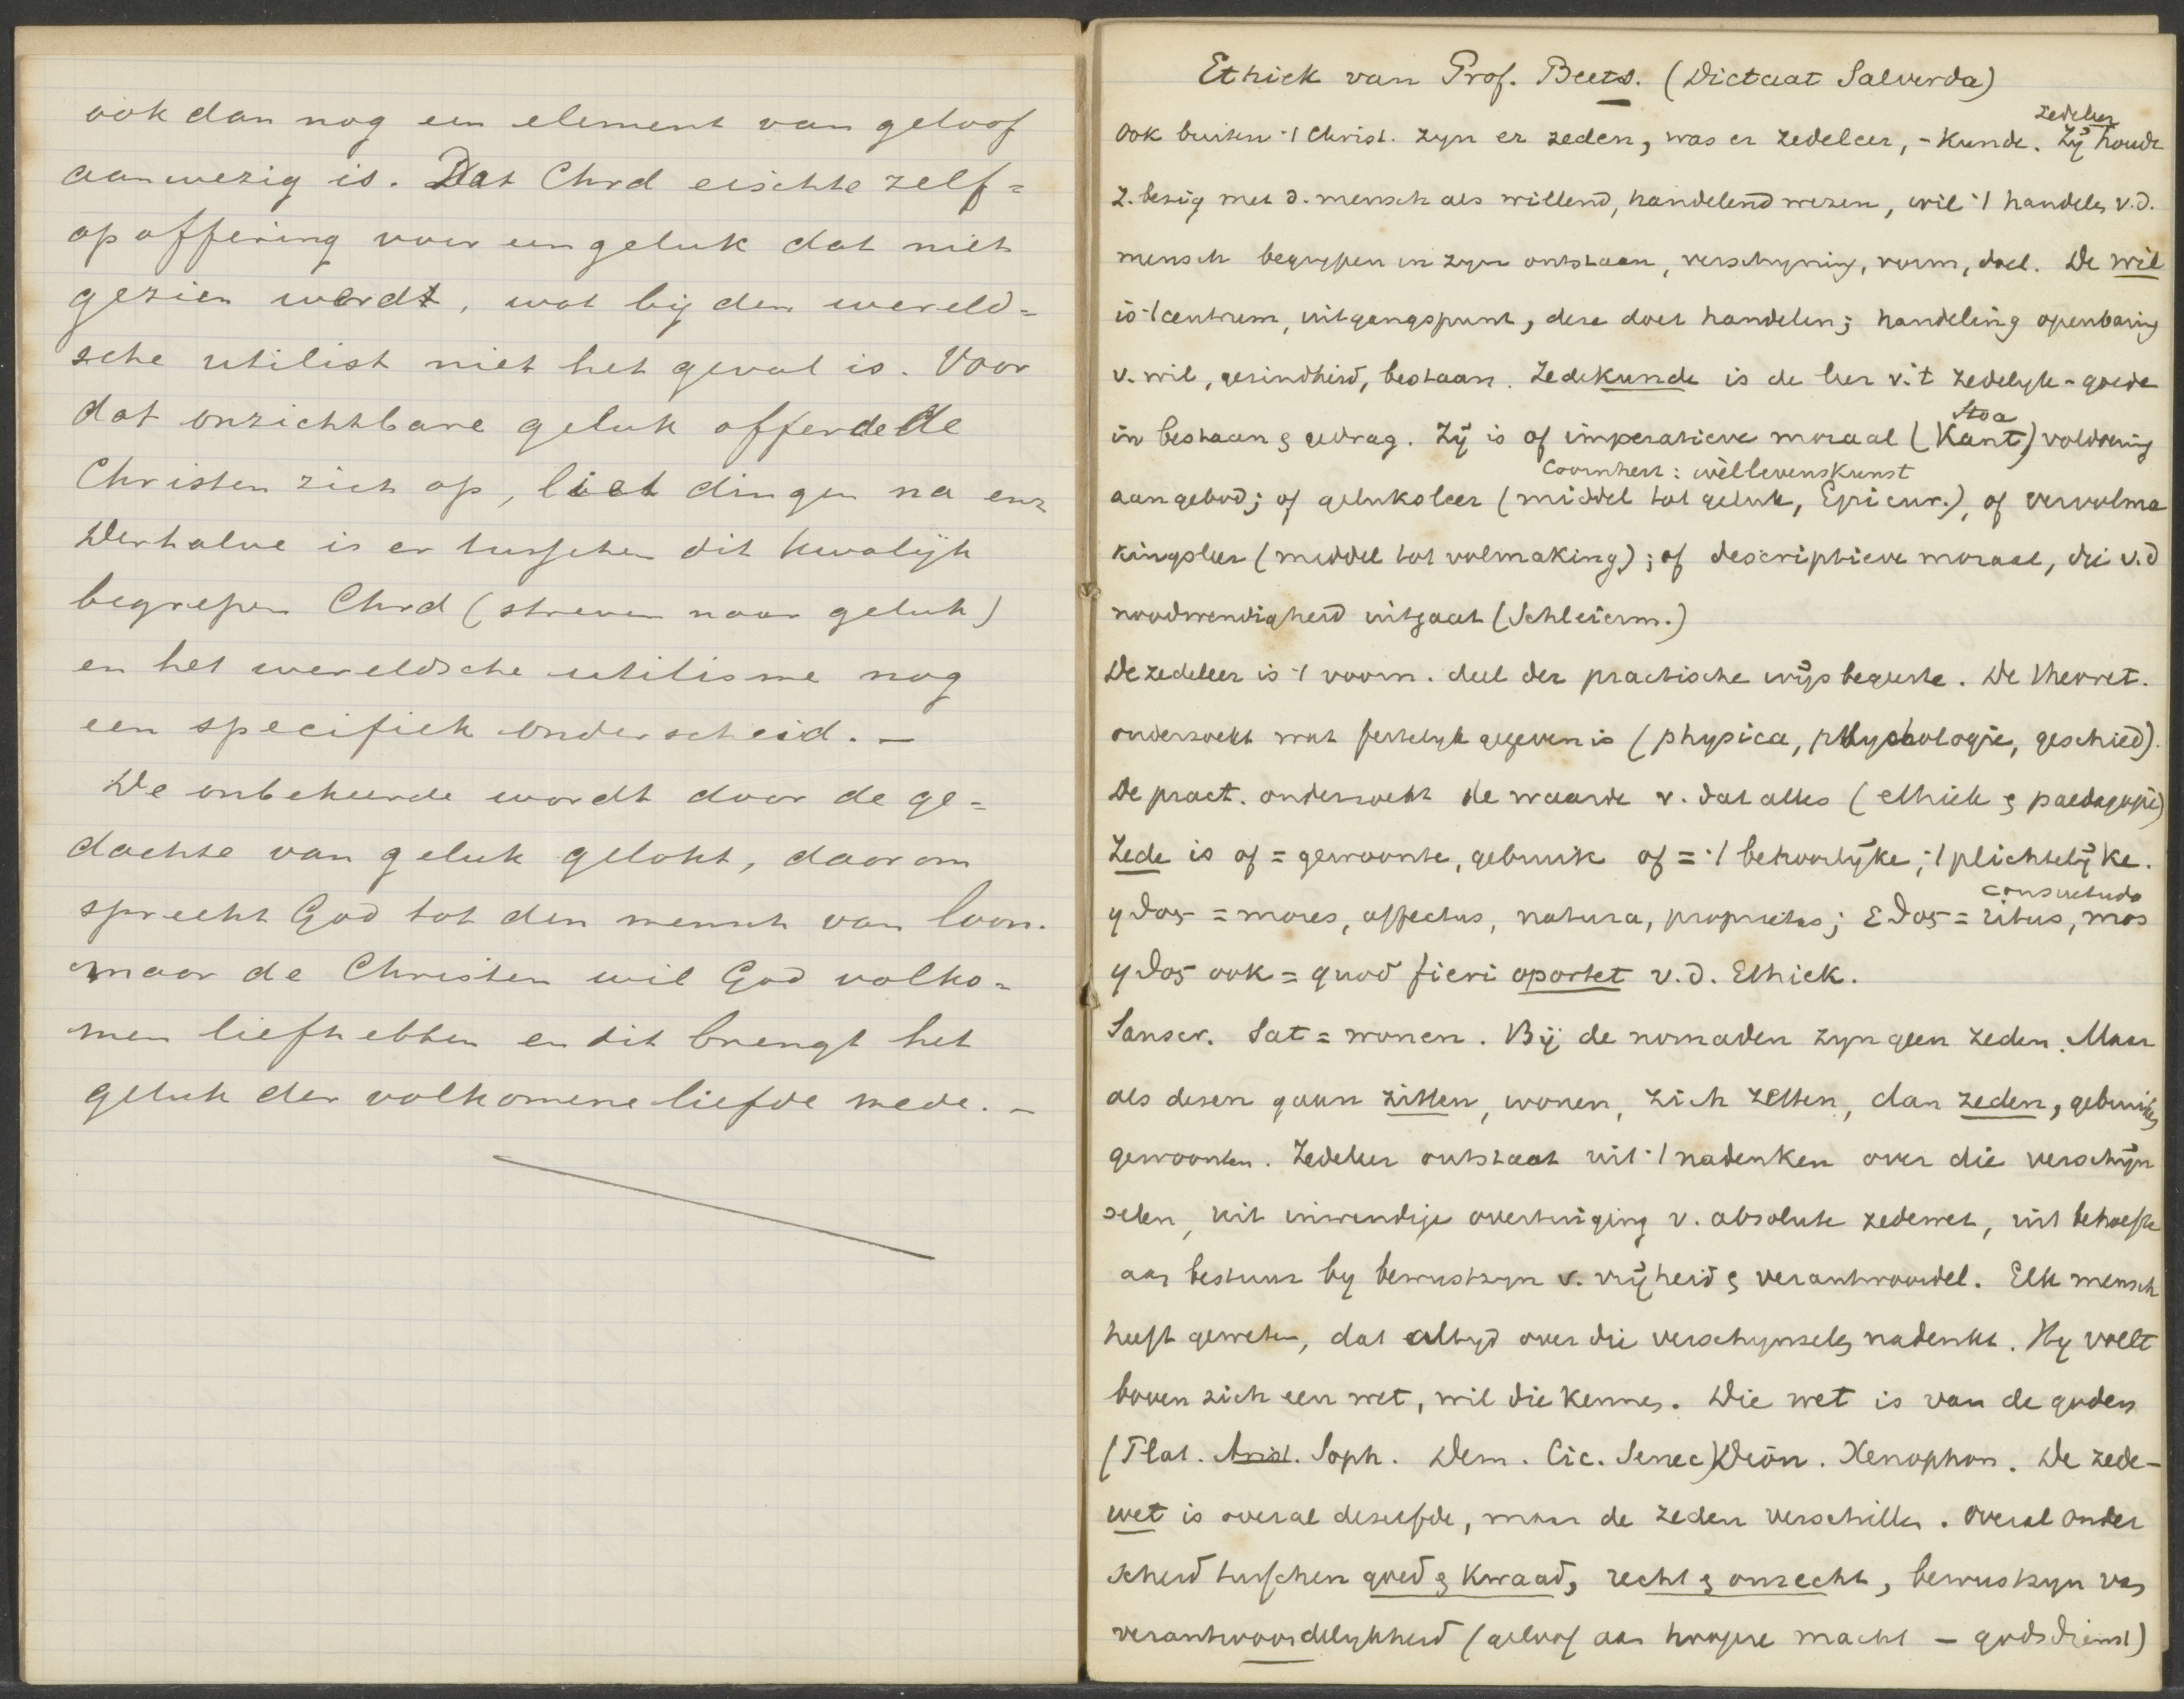 ook dan nog een element van geloof
aanwezig is. Dat Chrd eischte zelf=
opoffering voor een geluk dat niet
gezien wordt, wat bij den wereld=
sche utilist niet het geval is. Voor
dat onzichtbare geluk offerde de
Christen zich op, liet dingen na enz
Derhalve is er tusschen dit kwalijk
begrepen Chrd (streven naar geluk)
en het wereldsche utilisme nog
een specifiek onderscheid. —
De onbekeerde wordt door de ge=
dachte van geluk gelokt, daarom
spreekt God tot den mensch van loon.
maar de Christen wil God volko=
men liefhebben en dit brengt het
geluk der volkomene liefde mede. —
Ethiek van Prof. Beets. (Dictaat Salverda)
zedeleer
Ook buiten 't Christ. zyn er zeden, was er zedeleer, -kunde. Zij houdt
z. bezig met d. mensch als willend, handelend wezen, wil 't handelen v.d.
mensch begrypen in zyn ontstaan, verschyning, vorm, doel. De wil
is 't centrum, uitgangspunt, deze doet handelen; handeling openbaring
v. wil, gezindheid, bestaan. Zedekunde is de leer v. 't zedelyk-goede
Stoa
in bestaan & gedrag. Zij is of imperatieve moraal (Kant) voldoening
Coornhert: wèllevenskunst
aan gebod; of geluksleer (middel tot geluk, Epicur.), of vervolma
kingsleer (middel tot volmaking); of descriptieve moraal, die v.d
noodwendigheid uitgaat (Schleierm.)
De zedeleer is 't voorn. deel der practische wijsbegeerte. De theoret.
onderzoekt wat feitelyk gegeven is (physica, psychologie, geschied).
De pract. onderzoekt de waarde v. dat alles (ethiek & paedagogie)
Zede is of = gewoonte, gebruik of = 't behoorlijke, 't plichtelijke.
consuetudo
ηϑος = mores, affectus, natura, proprietas; εϑος = ritus, mos
ηϑος ook = quod fieri oportet v.d. Ethiek.
Sanscr. Sat = wonen. Bij de nomaden zyn geen zeden. Maar
als dezen gaan zitten, wonen, zich zetten, dan zeden, gebruiken
gewoonten. Zedeleer ontstaat uit 't nadenken over die verschijn
selen, uit inwendige overtuiging v. absolute zedewet, uit behoefte
aan bestuur by bewustzyn v. vrijheid & verantwoordel. Elk mensch
heeft geweten, dat altyd over die verschynselen nadenkt. Hy voelt
boven zich een wet, wil die kennen. Die wet is van de goden
(Plat. Arist. Soph. Dem. Cic. Senec) Dion. Xenophon. De zede-
wet is overal dezelfde, maar de zeden verschillen. Overal onder
scheid tusschen goed & kwaad, recht & onrecht, bewustzyn van
verantwoordelykheid (geloof aan hoogere macht — godsdienst)